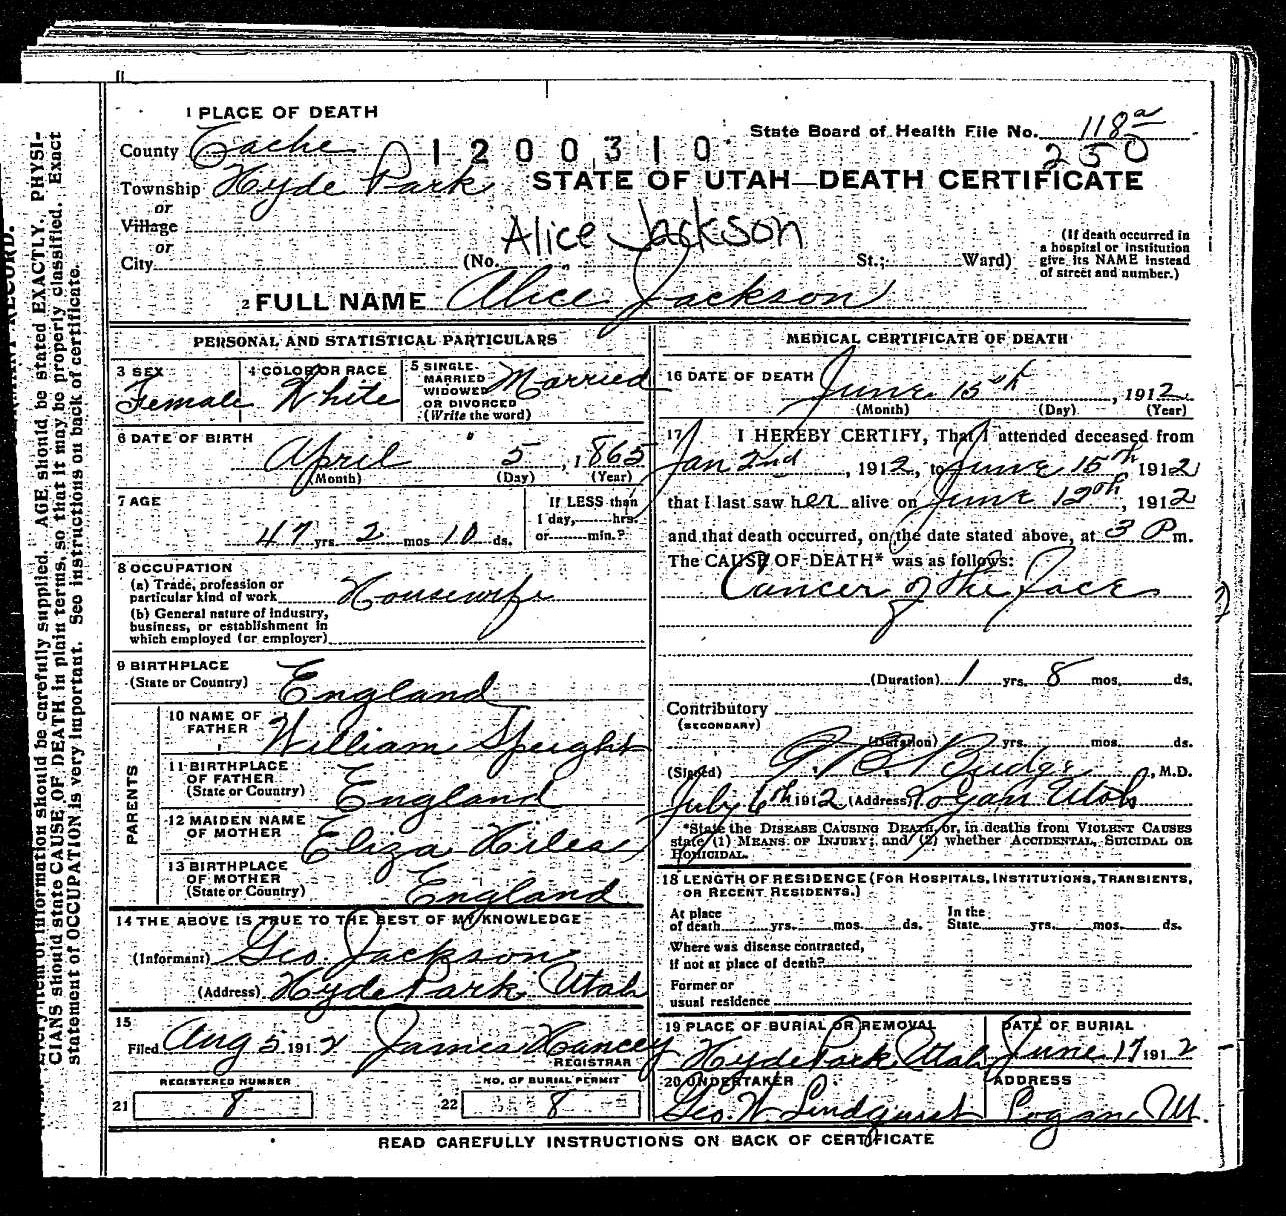 1 PLACE OF DEATH
State Board of Health File No. 118a
County Cache 1200310 250
Township Hyde Park STATE OF UTAH—DEATH CERTIFICATE
or
Village
Alice Jackson
or
City (No. , St.; Ward)
(If death occurred in
a hospital or institution
give its NAME instead
of street and number.)
2 FULL NAME Alice Jackson
PERSONAL AND STATISTICAL PARTICULARS
3 SEX Female
4 COLOR OR RACE White
5 SINGLE
MARRIED
WIDOWED
OR DIVORCED
(Write the word) Married
6 DATE OF BIRTH
April 5, 1865
(Month) (Day) (Year)
7 AGE
47 yrs. 2 mos 10 ds.
If LESS than
1 day, hrs.
or min.?
8 OCCUPATION
(a) Trade, profession or
particular kind of work Housewife
(b) General nature of industry,
business, or establishment in
which employed (or employer)
9 BIRTHPLACE
(State or Country) England
PARENTS
10 NAME OF
FATHER William Speight
11 BIRTHPLACE
OF FATHER
(State or Country) England
12 MAIDEN NAME
OF MOTHER Eliza
13 BIRTHPLACE
OF MOTHER
(State or Country) England
14 THE ABOVE IS TRUE TO THE BEST OF MY KNOWLEDGE
(Informant) Geo Jackson
(Address) Hyde Park Utah
15
Filed Aug 5 1912 James Hancey
REGISTRAR
REGISTERED NUMBER
21 8
NO. OF BURIAL PERMIT
22 8
MEDICAL CERTIFICATE OF DEATH
16 DATE OF DEATH June 15th, 1912
(Month) (Day) (Year)
17 I HEREBY CERTIFY, That I attended deceased from
Jan 2nd, 1912, to June 15th 1912
that I last saw her alive on June 12th, 1912
and that death occurred, on the date stated above, at 3 P m.
The CAUSE OF DEATH* was as follows:
Cancer of the Face
(Duration) 1 yrs. 8 mos. ds.
Contributory
(SECONDARY)
(Duration) yrs. mos. ds.
(Signed) Budge, M.D.
July 6th 1912 (Address) Logan Utah
*State the DISEASE CAUSING DEATH, or, in deaths from VIOLENT CAUSES
state (1) MEANS OF INJURY; and (2) whether ACCIDENTAL, SUICIDAL OR
HOMICIDAL.
18 LENGTH OF RESIDENCE (FOR HOSPITALS, INSTITUTIONS, TRANSIENTS,
OR RECENT RESIDENTS.)
At place
of death yrs. mos. ds.
In the
State yrs. mos. ds.
Where was disease contracted,
if not at place of death?
Former or
usual residence
19 PLACE OF BURIAL OR REMOVAL
Hyde Park Utah
DATE OF BURIAL
June 17 1912
20 UNDERTAKER
Geo. W. Lindquist
ADDRESS
Logan Ut.
READ CAREFULLY INSTRUCTIONS ON BACK OF CERTIFICATE
RECORD.
Every item of information should be carefully supplied. AGE should be stated EXACTLY. PHYSI-
CIANS should state CAUSE OF DEATH in plain terms, so that it may be properly classified. Exact
statement of OCCUPATION is very important. See instructions on back of certificate.